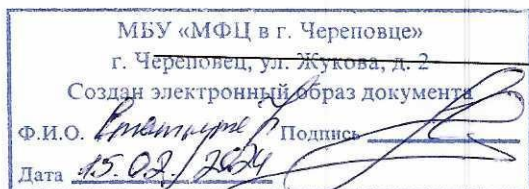 МБУ «МФЦ в г. Череповце»
г. Череповец, ул. Жукова, д. 2
Создан электронный образ документа
Ф.И.О. Подпись
Дата 15.02.2024